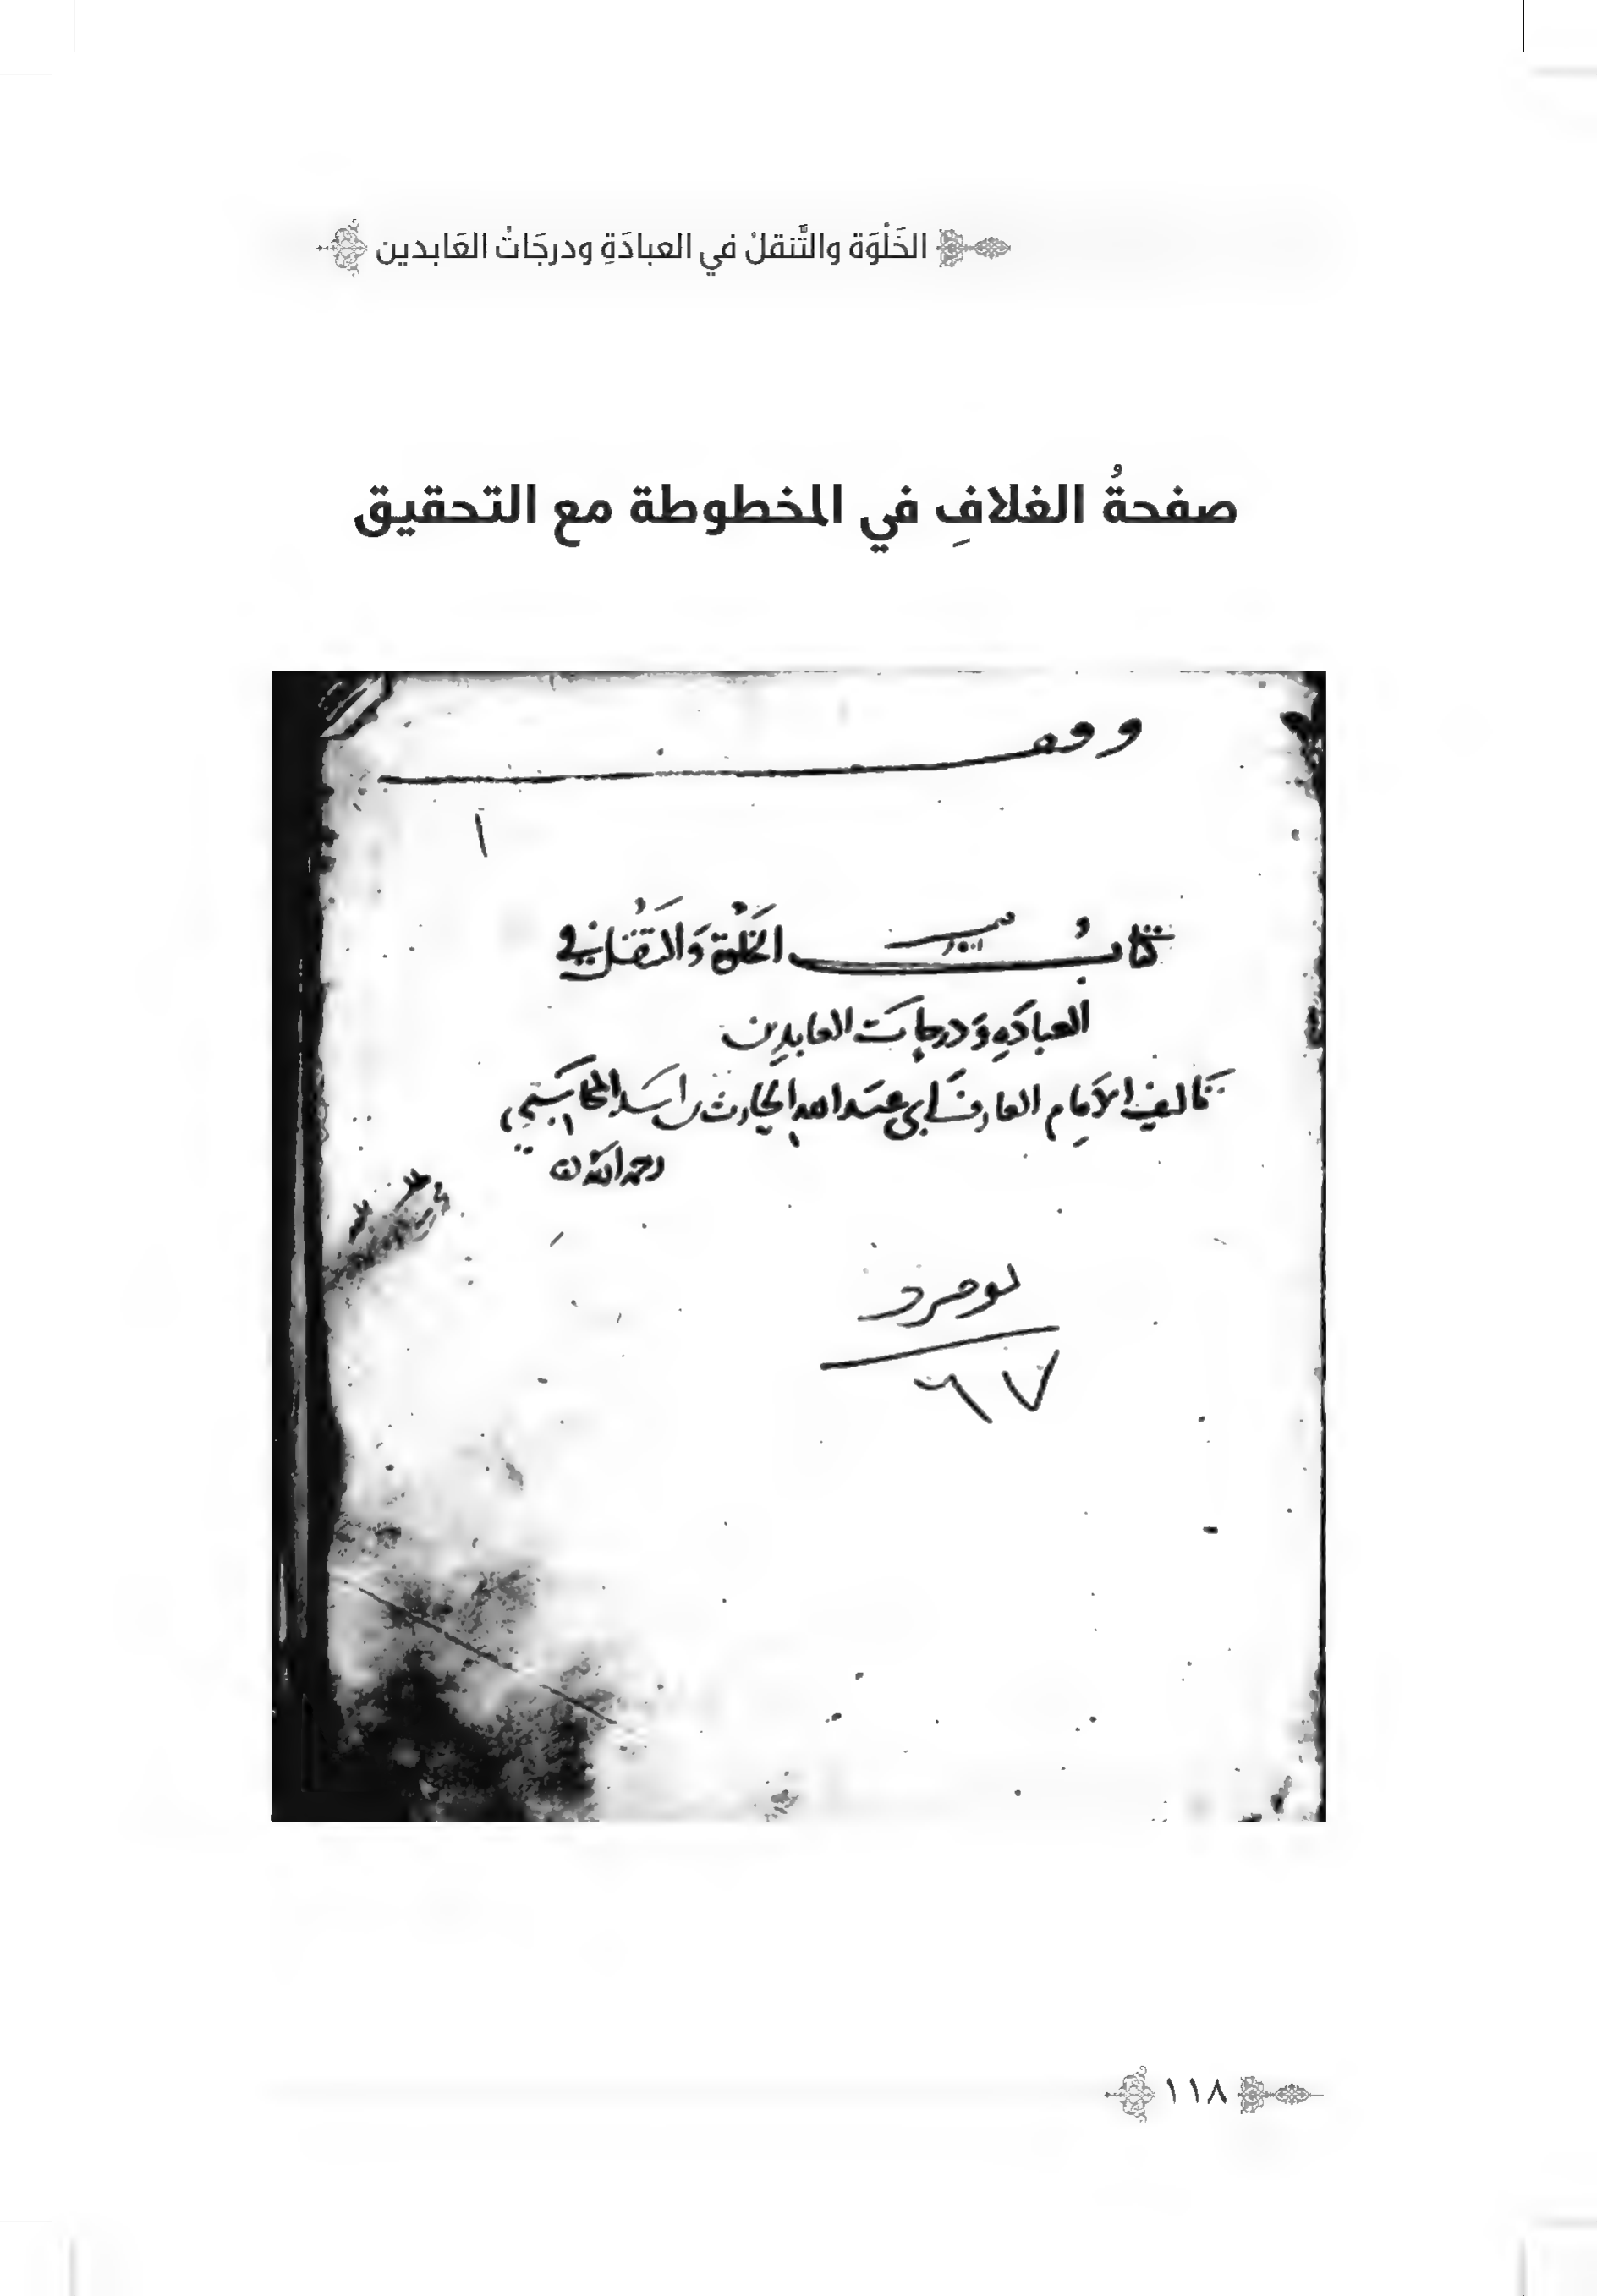 الخَلْوَة والتَّنقلُ في العبادَةِ ودرجَاتُ العَابدين
صفحةُ الغلافِ في المخطوطة مع التحقيق
وقف
١
كتابُ الخَلْوة وَالتنَقُل في
العبادَةِ وَدرجات العابدِين
تاليف الإمَامِ العارف أبي عبد الله الحارث بن أسد المحاسبي
رحمه الله
٦٧
١١٨